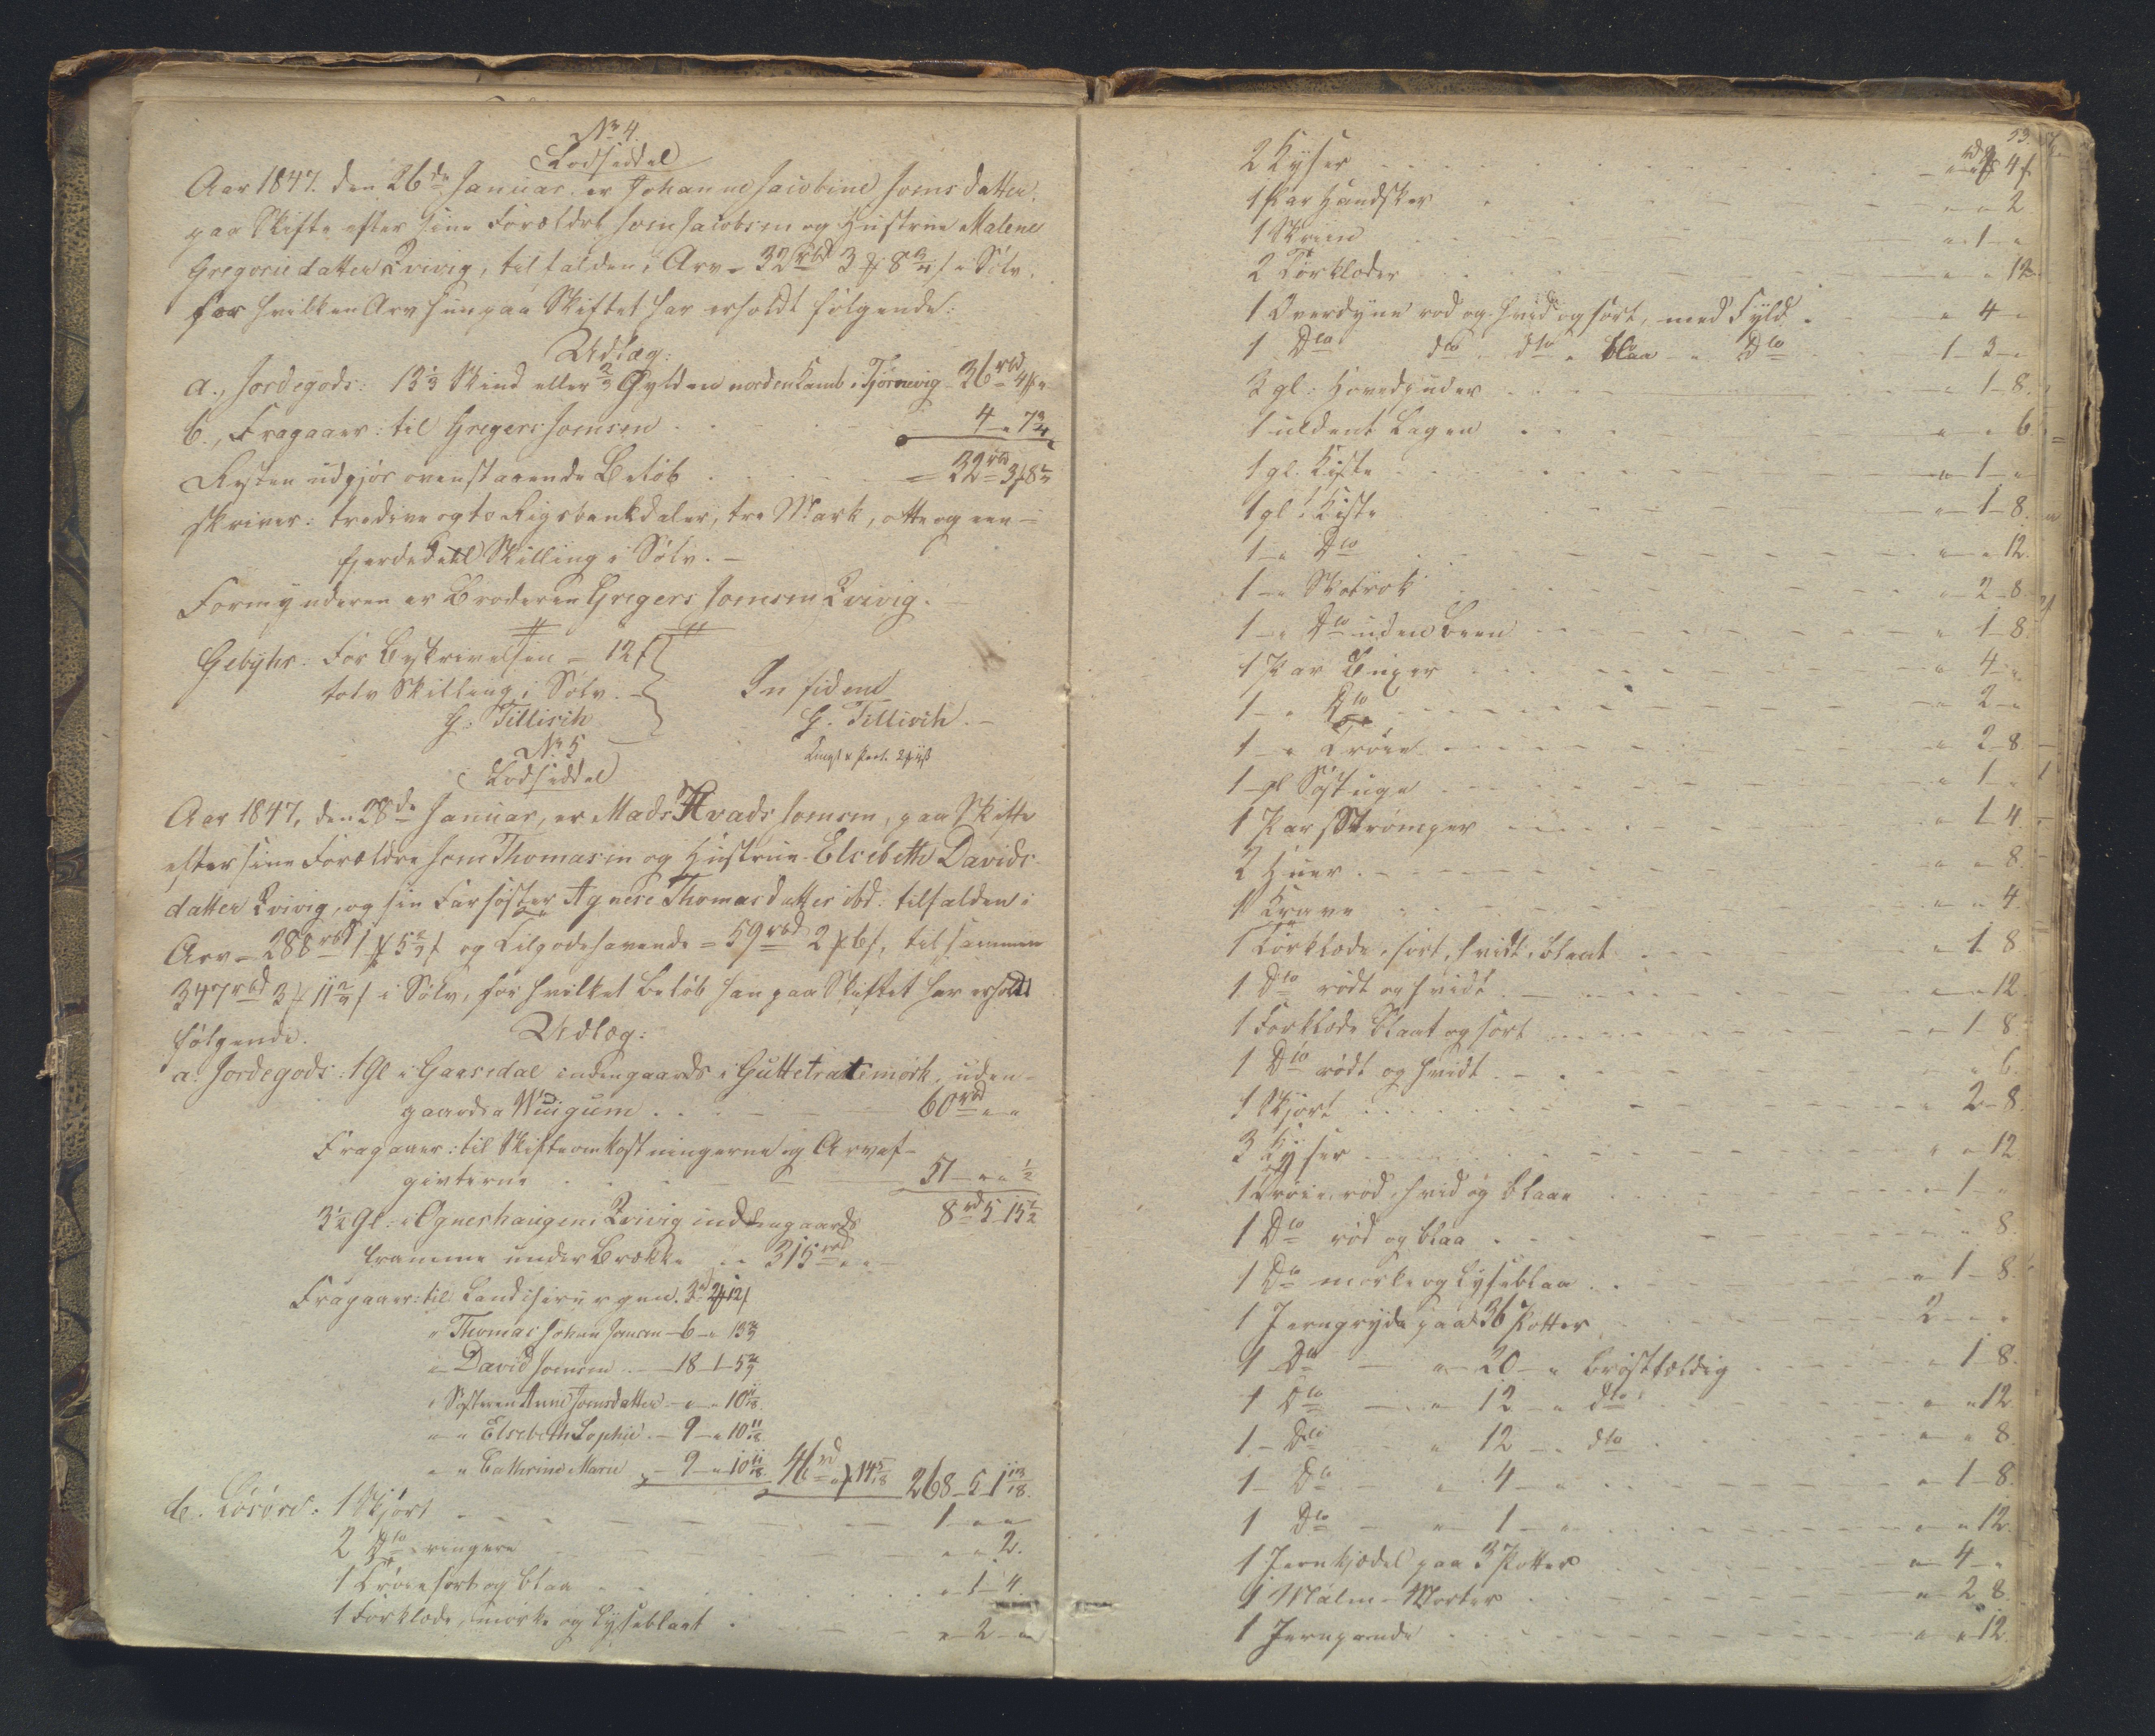 No 4.
Lodseddel
Aar 1847. den 26de Januar er Johanne Jacobine Joensdatter
paa Skifte efter sine Forældre Joen Jacobsen og Hustrue Malene
Gregoriedatter Qvivig, tilfalden i Arv = 32 rbd 3 mk 8 1/4 s i Sølv,
for hvilken Arv hun paa Skiftet har erholdt følgende:
Udlæg:
a., Jordegods: 13 1/3 Skind eller 2/3 Gylden norden Kamb i Tjørnevig 36 rbd 4 mk "
b., Fragaaer: til Gregers Joensen 4 " 7 3/4
Resten udgjør ovenstaaende Beløb = 32 rbd 3 mk 8 1/4
skriver: tredive og to Rigsbankdaler, tre Mark, otte og een
fjerdedeel Skilling i Sølv. -
Formynderen er Broderen Gregers Joensen Qvivig. -
Gebyhr: For Beskrivelsen = 12 s
tolv Skilling i Sølv. -
G. Tillisch
In fidem
G. Tillisch. -
No 5
Lodseddel
Aar 1847, den 28de Januar, er Mads Hvads Joensen, paa Skifte
efter sine Forældre Joen Thomasen og Hustrue Elsebeth Davids-
datter Qvivig, og sin Farsøster Agnese Thomasdatter ibd. tilfalden i
Arv = 288 rbd 1 mk 5 s og Tilgodehavende = 59 rbd 2 mk 6 s, tilsammen
347 rbd 3 mk 11 s i Sølv, for hvilket Beløb han paa Skiftet har erholdt
følgende.
Udlæg:
a. Jordegods: 1 Gl i Gaasedal indengaards i uden-
gaards 60 rbd " "
Fragaaer: til Skifteomkostningerne og Arveaf-
givterne 51 - " " 1/2
3 1/2 Gl: i Ognerhaugen i Qvivig indengaards 8 rd 5 15 1/2
framme under Brekke " " 315 rbd " "
Fragaaer: til Landchirurgen. 3 rd 2 mk 12 s
" Thomas Johan Joensen - 6 - " 13
" David Joensen - 18 - 1 - 5
" Søsteren Anne Joensdatter - 9 - " 10 11/18
" " Elsebeth Sophie - 9 - " 10 11/18
" " Cathrine Marie - 9 - " 10 11/18 46 rd " 14 5/18 268 - 5 - 1 13/18
b. Løsøre: 1 Skjørt 1 - " "
2 Dto ringere " " 2.
1 Trøie sort og blaa " 1 - 4.
1 Forklæde, mørke og lyseblaat " 2 - "
53.
2 Kyser 4 s
1 Par Handsker " " 2
1 Skrin " 1 - "
2 Tørklæder " " 12
1 Overdyne rød og hvid og sort, med Fyld " 4 - "
1 Dto dto - dto " blaa - " Dto 1 - 3 - "
3 gl: Hovedpuder " 1 - 8.
1 uldent Lagen " " 6
1 gl. Kiste " 1 - "
1 gl. Kiste " 1 - 8.
1 - " Dto " " 12.
1 - " Skotrok " 2 - 8
1 - " Dto uden Been " 1 - 8
1 Par Buxer " 4 - "
1 - " Dto " 2 - "
1 - " Trøie " 2 - 8
1 - gl " 1 - "
1 Par Strømper " 1 4.
2 Huer " " 8.
1 Krave " " 4
1 Tørklæde, sort, hvidt, blaat " 1 8
1 Dto rødt og hvidt " " 12
1 Forklæde blaat og sort " 1 - 8
1 Dto rødt og hvidt " " 6.
1 Skjørt " 2 - 8
3 Kyser " " 12
1 Trøie, rød, hvid og blaae " 1 - "
1 Dto rød og blaa " " 8.
1 Dto mørke og lyseblaa " 1 - 8
1 Jerngryde paa 36 Potter 2 - " "
1 Dto - " 20 - " brøstfældig " 1 8.
1 Dto - " 12 - " dto " " 12
1 - Dto " 12 - " dto " " 8
1 - Dto - " 4 - " " 1 - 8
1 Dto - " 1 - " " " 12.
1 Jernkjedel paa 3 Potter " 4 - "
1 Malm-Morter " 2 8.
1 Jernpande " " 12